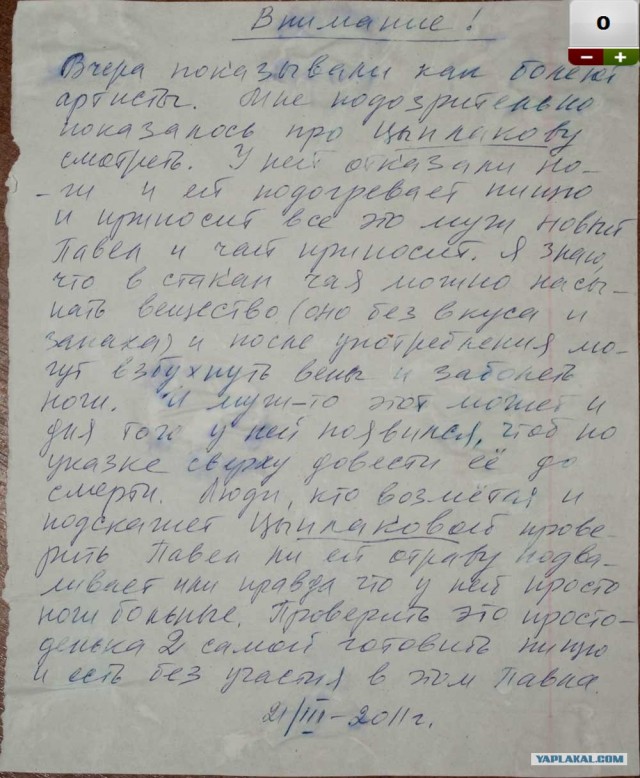 0
Внимание!
Вчера показывали как болеют
артисты. Мне подозрительно
показалось про Цыплакову
смотреть. У ней отказали но-
-ги и ей подогревает пищю
и приносит все это муж новый
Павел и чай приносит. Я знаю,
что в стакан чая можно насы-
пать вещество (оно без вкуса и
запаха) и после употребления мо-
гут взбухнуть вены и заболеть
ноги. И муж-то этот может и
для того у ней появился, чтоб по
указке сверху довести её до
смерти. Люди, кто возмётся и
подскажет Цыплаковой прове-
рить Павел ли ей отраву подва-
ливает или правда что у ней просто
ноги больные. Проверить это просто-
денька 2 самой готовить пищю
и есть без участия в этом Павла.
21/III-2011г.
YAPLAKAL.COM